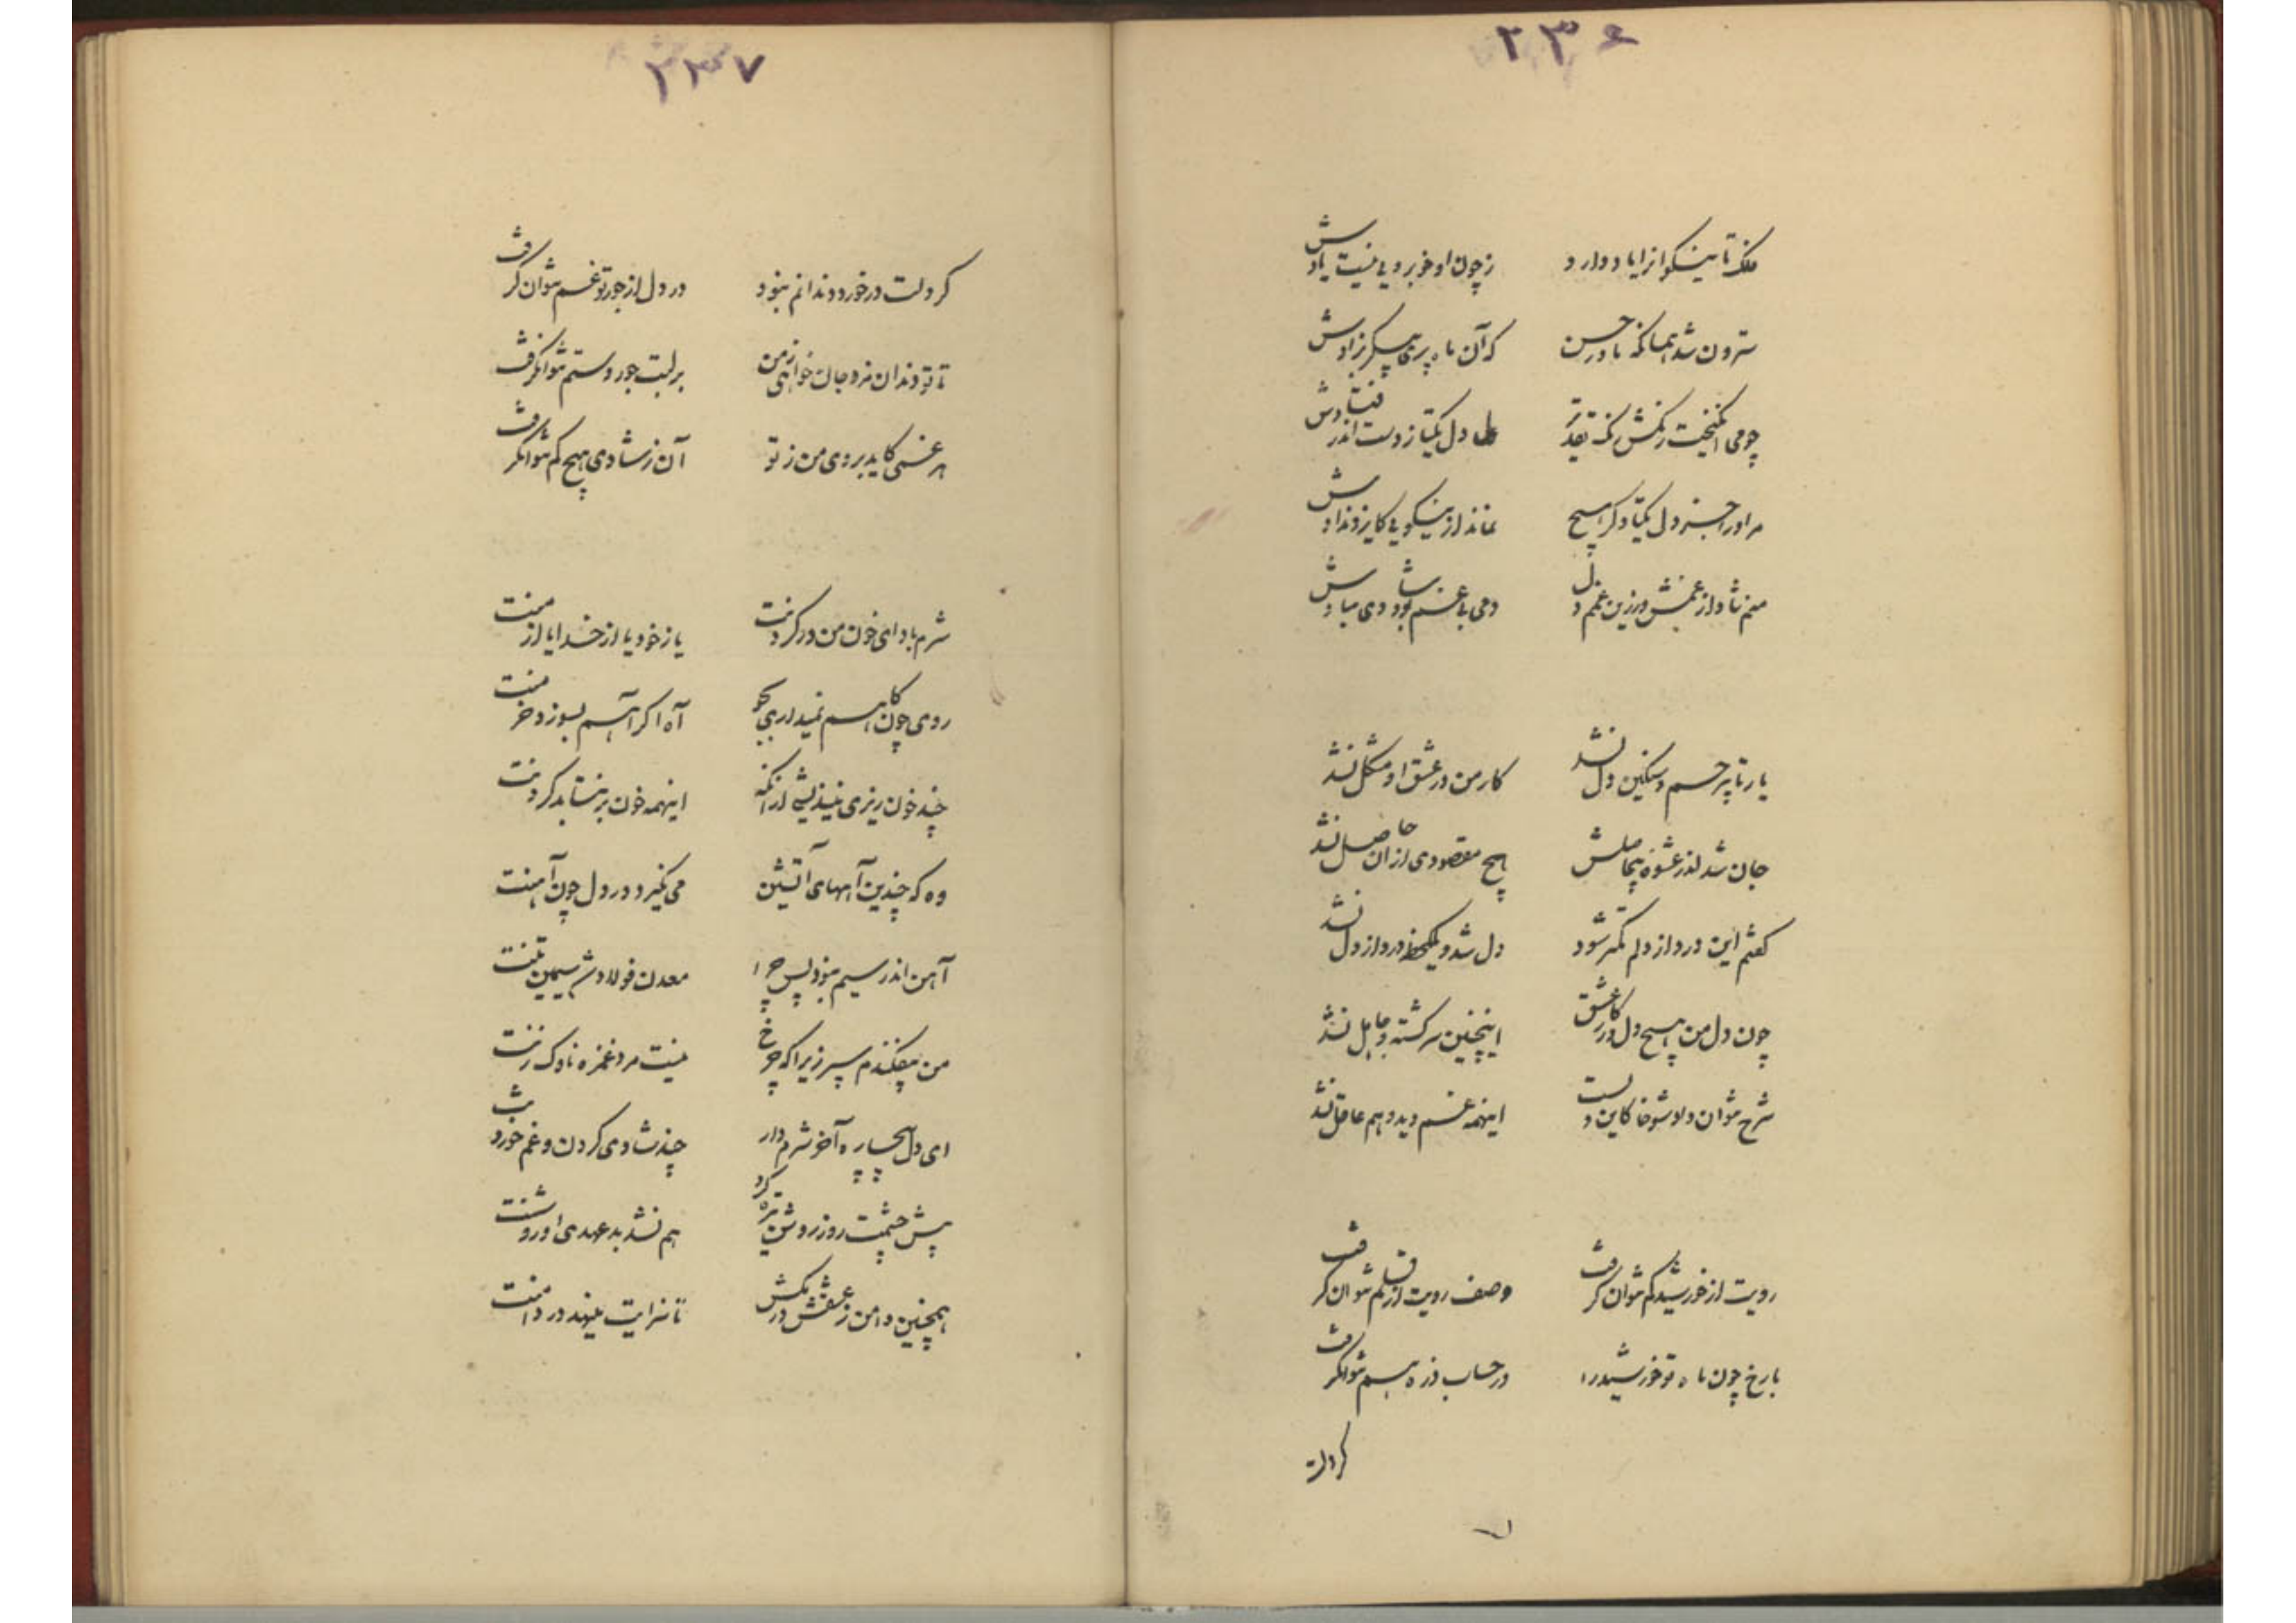 ۲۳۶
فلک تا نیکوانرا یاد دارد ز چون او خوبرویی نیست یادش
سترون شد همانگه مادر حسن که آن ماه پری پیکر بزادش
چو می انگیخت رنگش کلک تقدیر دل یکتا ز دست اندر فتادش
مر او را جز دل یکتا دگر هیچ نماند از نیکویی کایزد ندادش
منم شاد از غمش ورزین غم دل دمی بی غم بود شادی مبادش
یار تا بیرحم و سنگین دل نشد کار من در عشق او مشکل نشد
جان شد اندر عشوه بیحاصلش هیچ مقصودی از آن حاصل نشد
گفتم این درد از دلم کمتر شود دل شد و یکلحظه درد از دل نشد
چون دل من هیچ دل در کار عشق اینچنین سرگشته و جاهل نشد
شرح نتوان داد شوخا کاین دلست اینهمه غم دید و هم عاقل نشد
رویت از خورشید کم نتوان گرفت وصف رویت از قلم نتوان گرفت
با رخ چون ماه تو خورشید را در حساب ذره هم نتوان گرفت
گر دلت
۲۳۷
گر دلت در خورد دندانم نبود در دل از جور تو غم نتوان گرفت
تا تو دندان مزد جان خواهی ز من بر لبت جور و ستم نتوان گرفت
هر غمی کاید بروی من ز تو آن ز شادی هیچ کم نتوان گرفت
شرم باد ای خون من در گردنت یا ز خود یا از خدا یا از منت
روی چون کاهم نمیداری بجو آه اگر آهم بسوزد خرمنت
چند خون ریزی نیندیشی از آنکه اینهمه خون بر نتابد گردنت
وه که چندین آههای آتشین می نگیرد در دل چون آهنت
آهن اندر سیم نبود پس چرا معدن فولاد شد سیمین تنت
من بیفکندم سپر زیرا که چرخ نیست مرد غمزه ناوک زنت
ای دل بیچاره آخر شرم دار چند شادی کردن و غم خوردنت
پیش چشمت روز روشن تیره کرد هم نشد بد عهدی او روشنت
همچنین دامن ز عشقش در مکش تا سزایت مینهد در دامنت